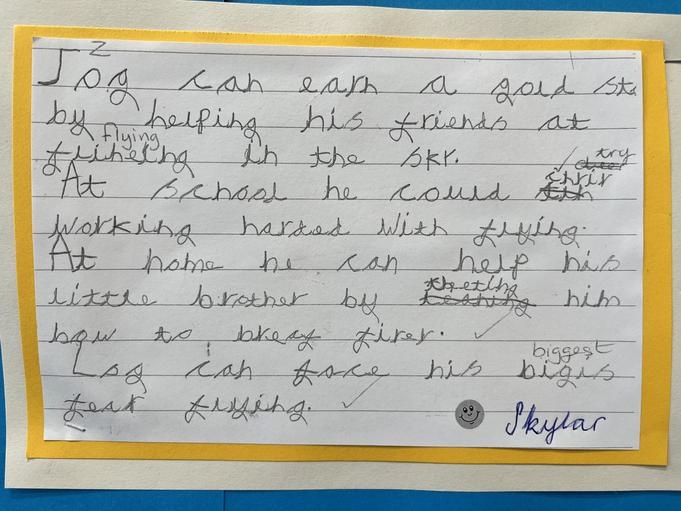 Zog can earn a gold sta
by helping his friends at
flying
fliheing in the skr.
try
chrir
At school he could
working harded With flying.
At home he can help his
theeting
little brother by teahing him
how to breay firer.
biggest
Log can face his bigis
fear flying.
Skylar